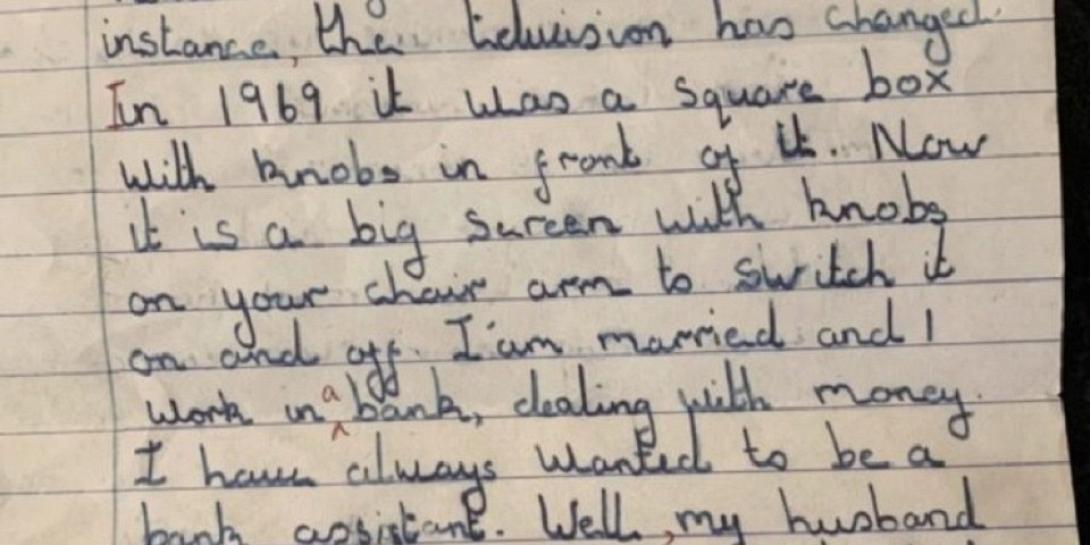 instance, the television has changed.
In 1969 it was a square box
with knobs in front of it. Now
it is a big screen with knobs
on your chair arm to switch it
on and off. I'am married and I
work in a bank, dealing with money.
I have always wanted to be a
bank assistant. Well, my husband